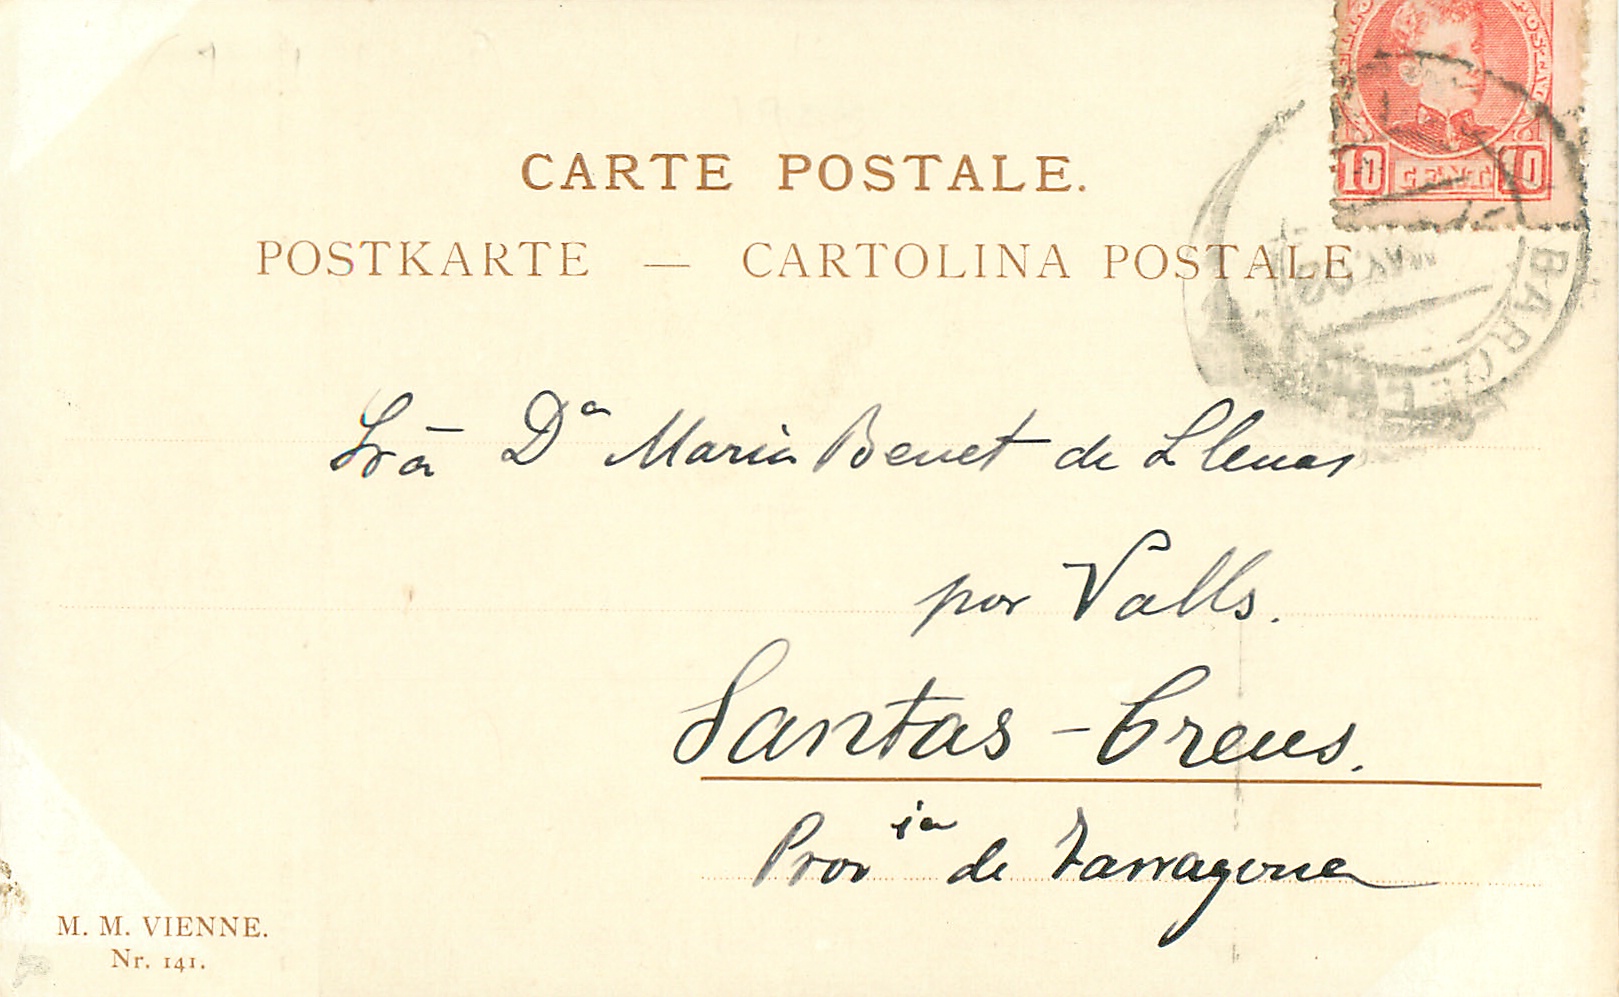 CARTE POSTALE.
POSTKARTE — CARTOLINA POSTALE
10 CENT. 10
MAY. 03
BARCEL
Srā Dª Maria Benet de Llenas
por Valls.
Santas-Creus.
Provia de Tarragona
M. M. VIENNE.
Nr. 141.